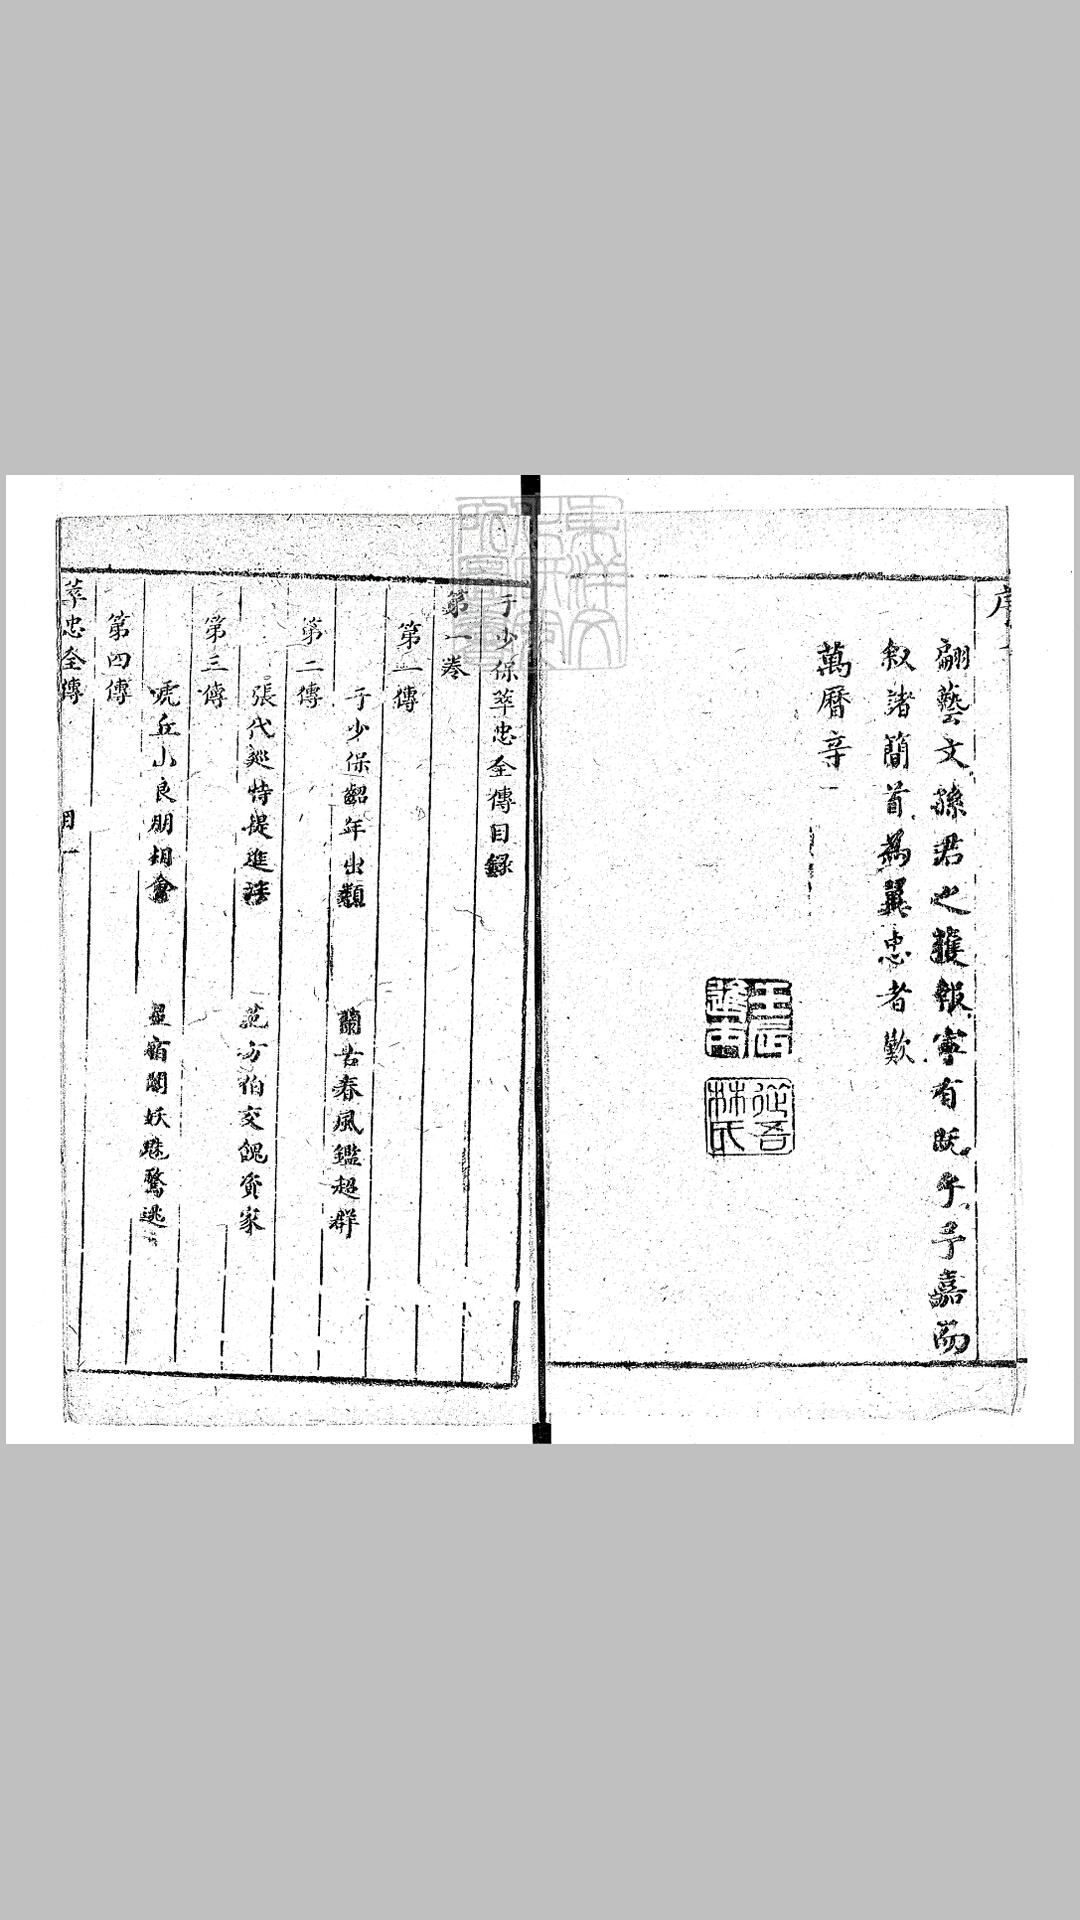 序
翩藝文孫君之獲報寧有既乎予嘉而
叙諸簡首為翼忠者歟
萬曆辛
從吾
林氏
于少保萃忠全傳目録
第一卷
第一傳
于少保齠年出類　蘭古春風鑑超群
第二傳
張代巡特提進泮　范方伯交餽資家
第三傳
虎丘山良朋相會　星宿閣妖魅驚逃
第四傳
萃忠全傳　目一